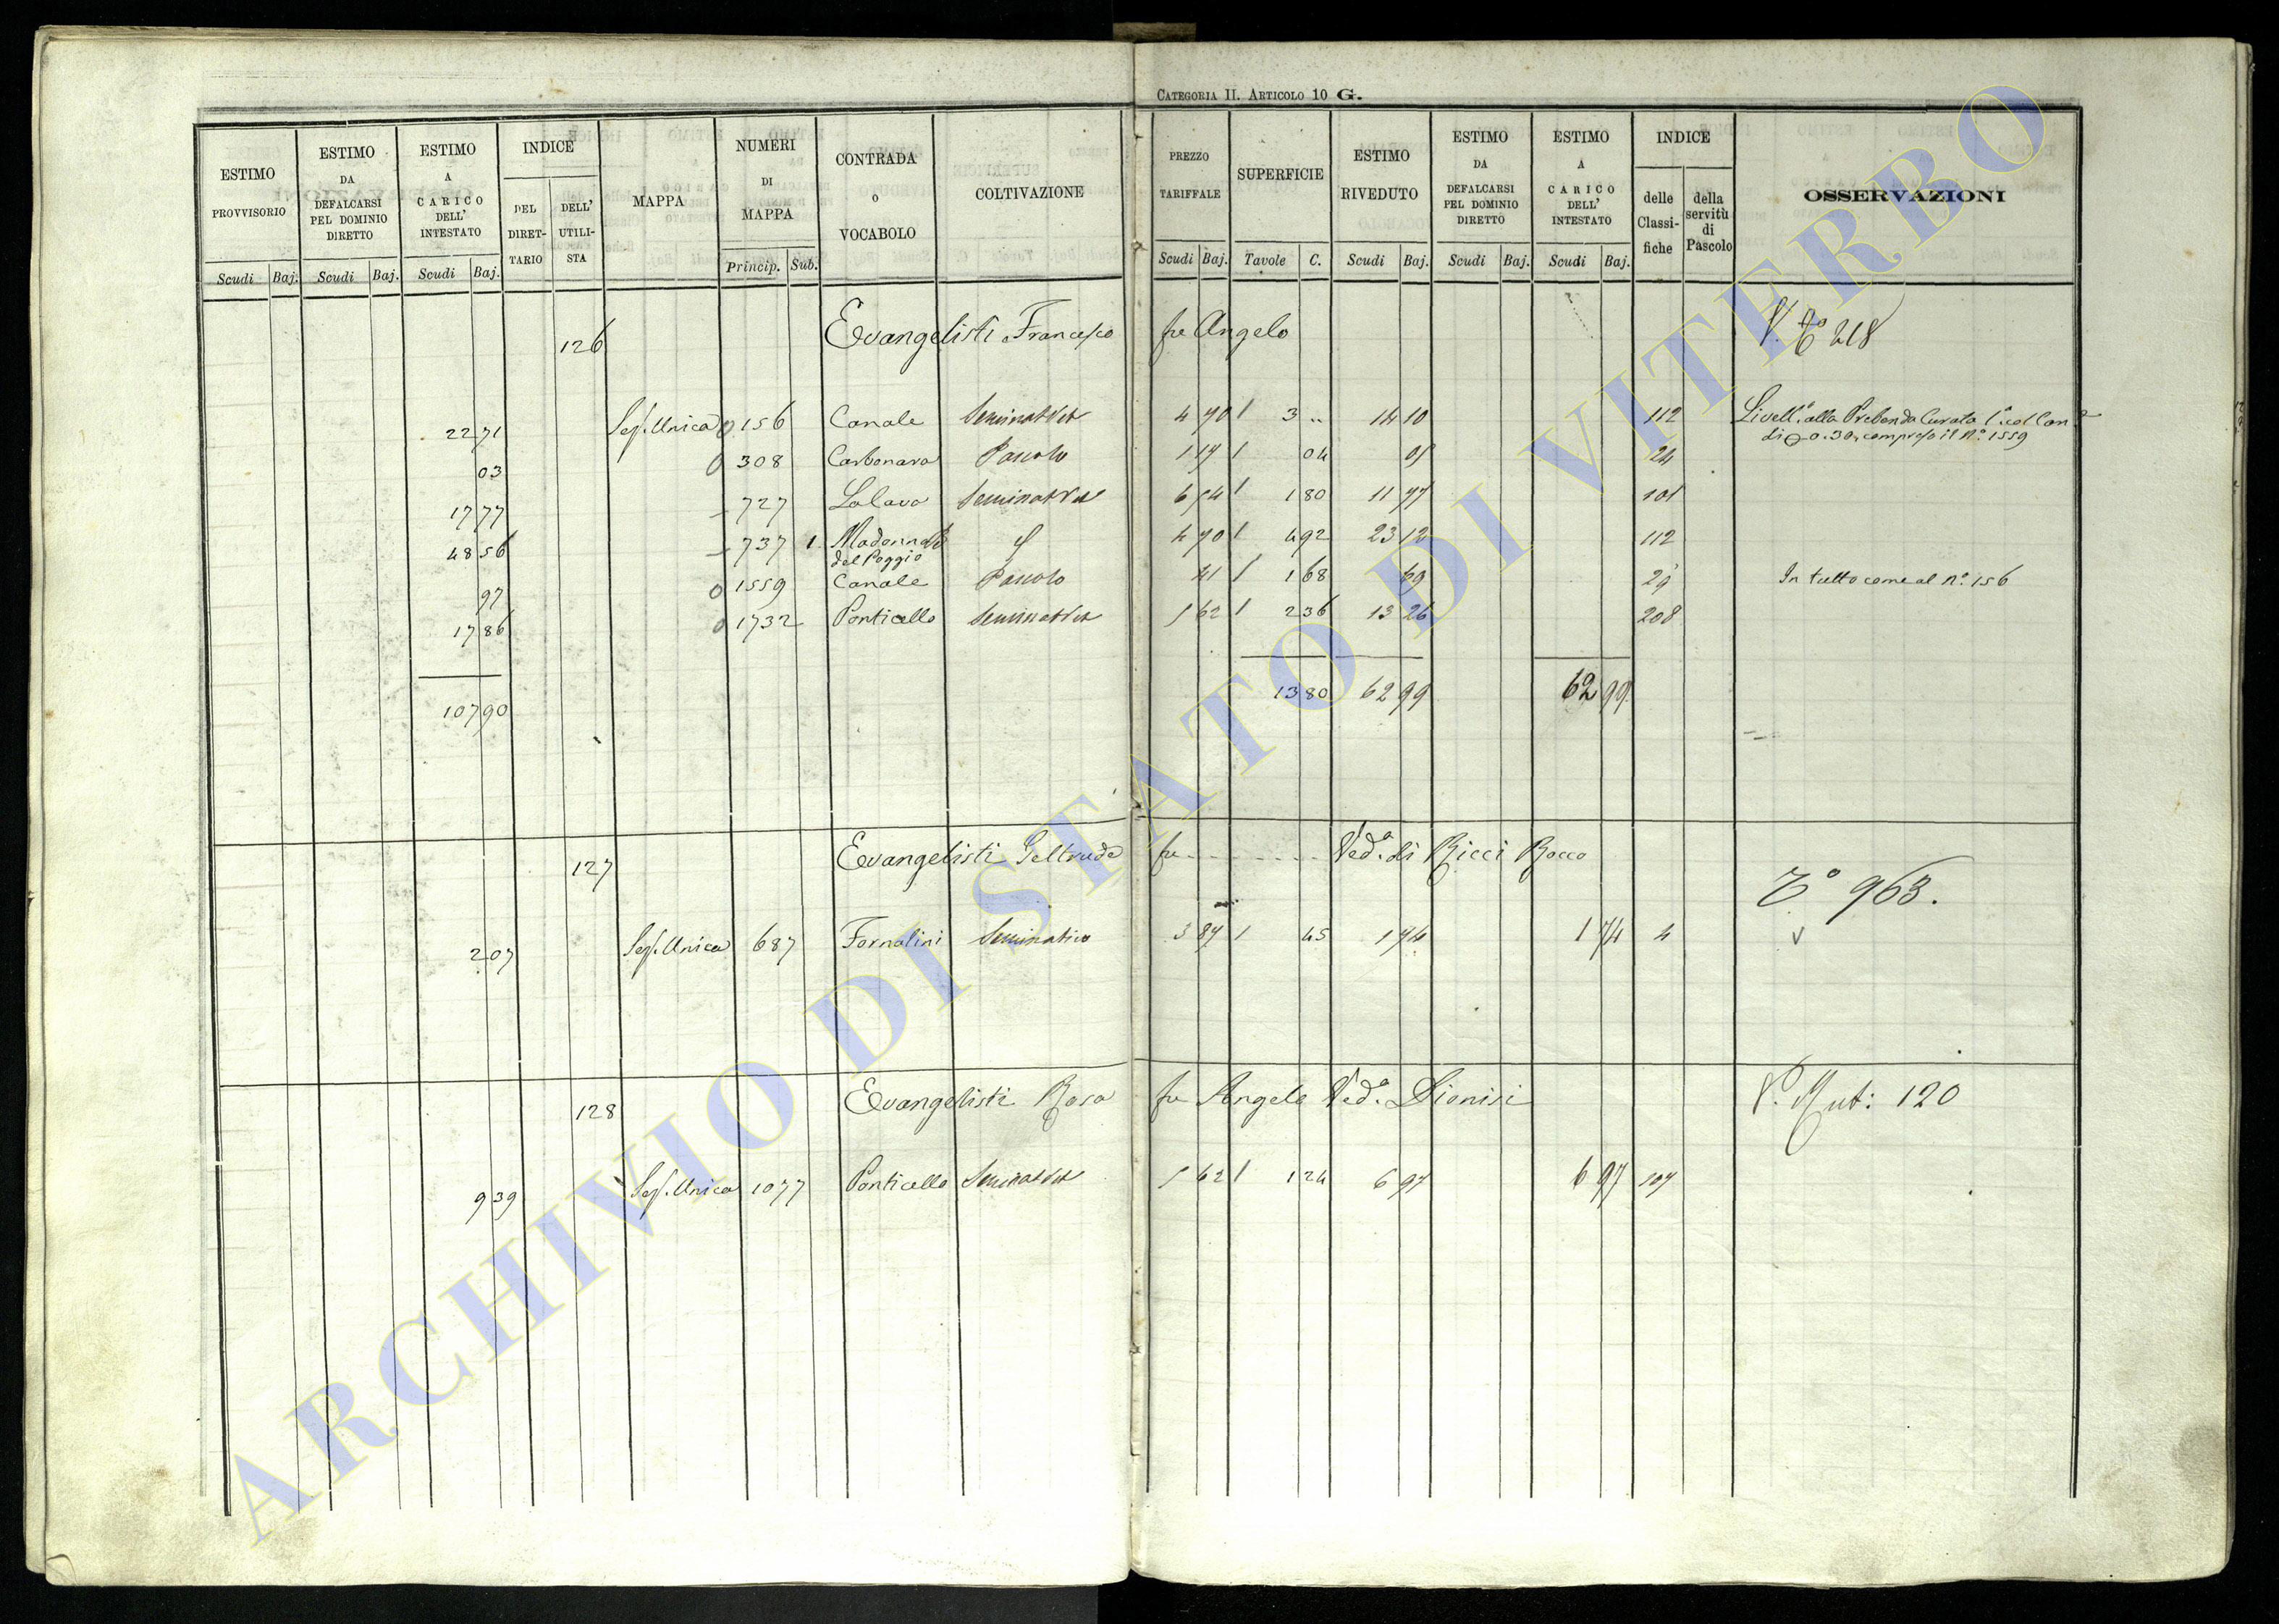 CATEGORIA II. ARTICOLO 10 G.
ESTIMO PROVVISORIO Scudi Baj.
ESTIMO DA DEFALCARSI PEL DOMINIO DIRETTO Scudi Baj.
ESTIMO A CARICO DELL' INTESTATO Scudi Baj.
INDICE DEL DIRET-TARIO DELL' UTILI-STA
MAPPA
NUMERI DI MAPPA Princip. Sub.
CONTRADA O VOCABOLO
COLTIVAZIONE
PREZZO TARIFFALE Scudi Baj.
SUPERFICIE Tavole C.
ESTIMO RIVEDUTO Scudi Baj.
ESTIMO DA DEFALCARSI PEL DOMINIO DIRETTO Scudi Baj.
ESTIMO A CARICO DELL' INTESTATO Scudi Baj.
INDICE delle Classi-fiche della servitù di Pascolo
OSSERVAZIONI
126 Evangelisti Francesco fu Angelo V. To 218
22 71 Sez. Unica 0 156 Canale Seminat Vit 4 70 / 3 .. 14 10 112 Livell.a alla Prebenda Curata
di 0.30, compreso il N.o 1559
03 0 308 Carbonara Pascolo 1 17 / 04 05 24
17 77 727 Lalava Seminat Vit 6 54 / 1 80 11 77 101
48 56 737 1 Madonna del Poggio 4 70 / 4 92 23 12 112
97 0 1559 Canale Pascolo 41 / 1 68 69 29 In tutto come al N.o 156
17 86 0 1732 Ponticello Seminat Vit 5 62 / 2 36 13 26 208
107 90 13 80 62 99 62 99
127 Evangelisti Geltrude fu ........ Ved.a di Ricci Rocco
To 963.
2 07 Sez. Unica 687 Fornalini Seminativo 3 87 / 45 1 74 1 74 4 V
128 Evangelisti Rosa fu Angelo Ved.a Dionisi V. Mut: 120
9 39 Sez. Unica 1077 Ponticello Seminat Vit 5 62 / 1 24 6 97 6 97 107
ARCHIVIO DI STATO DI VITERBO